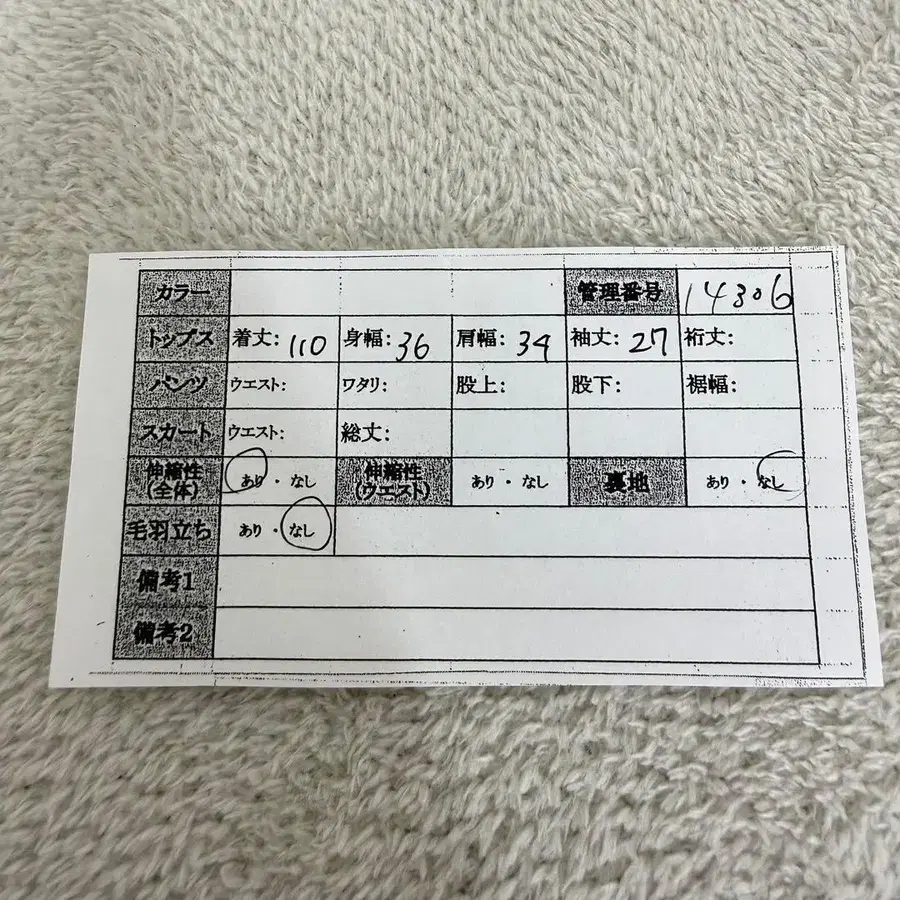 カラー 管理番号 14306
トップス 着丈: 110 身幅: 36 肩幅: 34 袖丈: 27 裄丈:
パンツ ウエスト: ワタリ: 股上: 股下: 裾幅:
スカート ウエスト: 総丈:
伸縮性(全体) あり・なし 伸縮性(ウエスト) あり・なし 裏地 あり・なし
毛羽立ち あり・なし
備考1
備考2